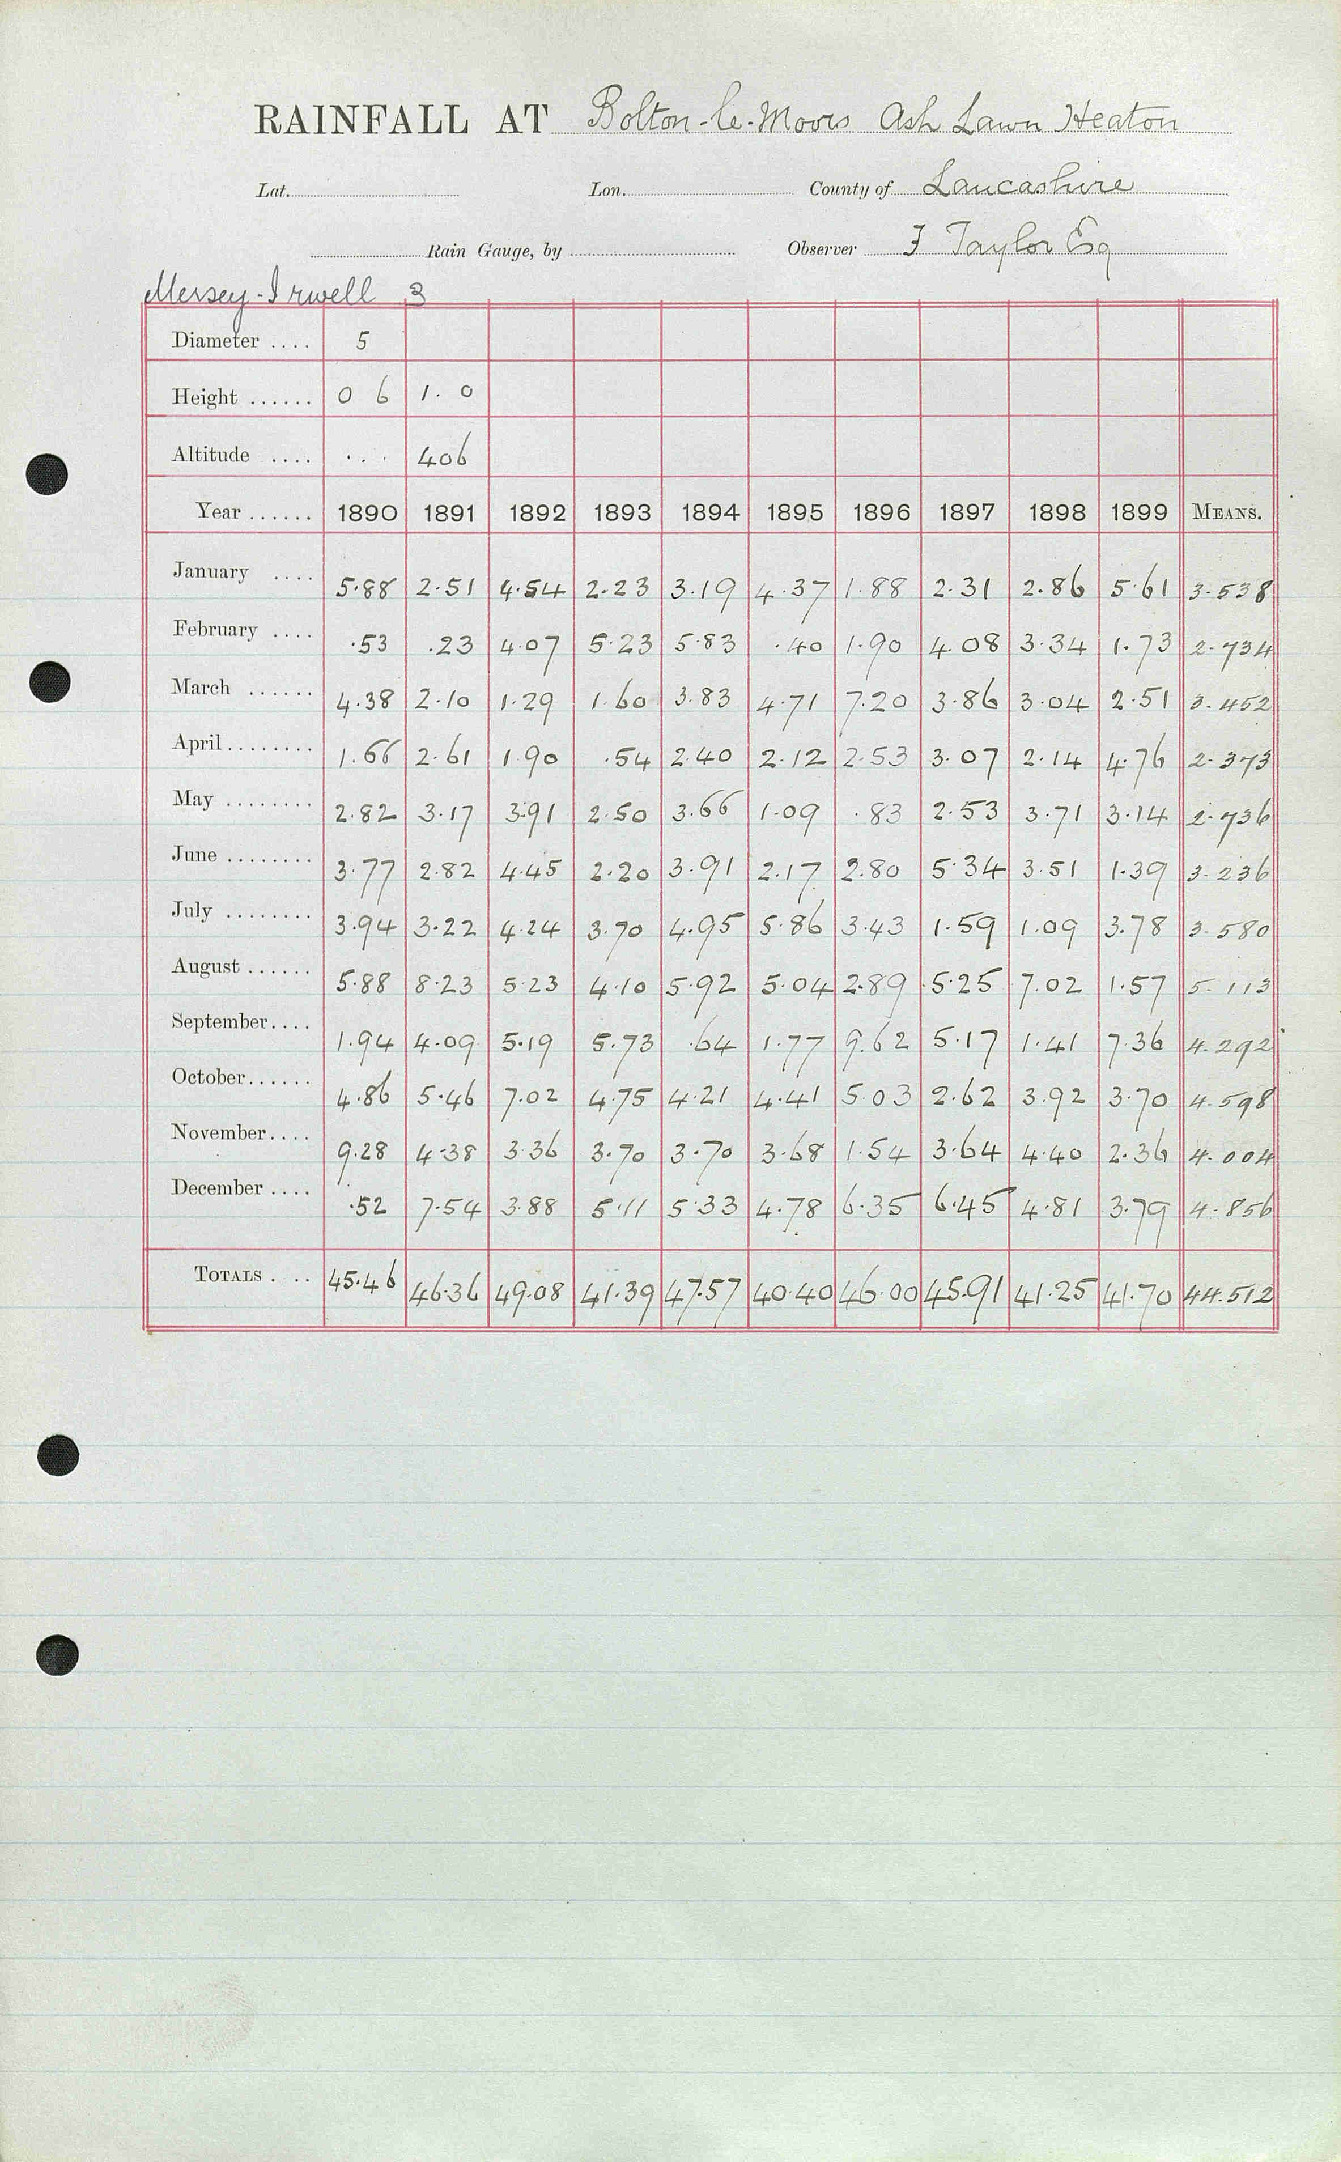 RAINFALL AT Bolton-le-Moors Ash Lawn Heaton
Lat. Lon. County of Lancashire
Rain Gauge, by Observer F Taylor Esq
Mersey-Irwell 3
Diameter .... 5
Height ...... 0 6 1. 0
Altitude .... ... 406
Year ...... 1890 1891 1892 1893 1894 1895 1896 1897 1898 1899 MEANS.
January .... 5.88 2.51 4.54 2.23 3.19 4.37 1.88 2.31 2.86 5.61 3.538
February .... .53 .23 4.07 5.23 5.83 .40 1.90 4.08 3.34 1.73 2.734
March ...... 4.38 2.10 1.29 1.60 3.83 4.71 7.20 3.86 3.04 2.51 3.452
April........ 1.66 2.61 1.90 .54 2.40 2.12 2.53 3.07 2.14 4.76 2.373
May ........ 2.82 3.17 3.91 2.50 3.66 1.09 .83 2.53 3.71 3.14 2.736
June ........ 3.77 2.82 4.45 2.20 3.91 2.17 2.80 5.34 3.51 1.39 3.236
July ........ 3.94 3.22 4.24 3.70 4.95 5.86 3.43 1.59 1.09 3.78 3.580
August ...... 5.88 8.23 5.23 4.10 5.92 5.04 2.89 5.25 7.02 1.57 5.113
September.... 1.94 4.09 5.19 5.73 .64 1.77 9.62 5.17 1.41 7.36 4.292
October...... 4.86 5.46 7.02 4.75 4.21 4.41 5.03 2.62 3.92 3.70 4.598
November.... 9.28 4.38 3.36 3.70 3.70 3.68 1.54 3.64 4.40 2.36 4.004
December .... .52 7.54 3.88 5.11 5.33 4.78 6.35 6.45 4.81 3.79 4.856
TOTALS .... 45.46 46.36 49.08 41.39 47.57 40.40 46.00 45.91 41.25 41.70 44.512